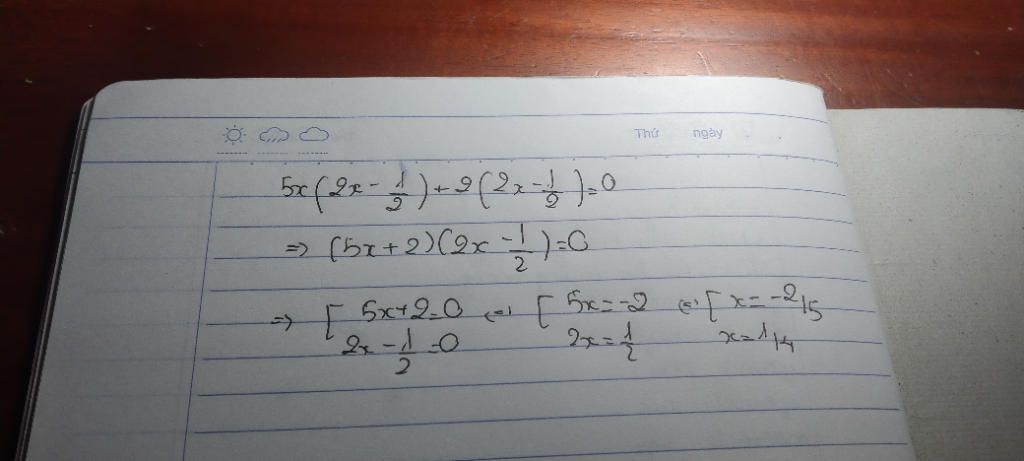 Thứ ngày
5x(2x - 1/2) + 2(2x - 1/2) = 0
=> (5x + 2)(2x - 1/2) = 0
=> [ 5x + 2 = 0 <=> [ 5x = -2 <=> [ x = -2/5
2x - 1/2 = 0 2x = 1/2 x = 1/4